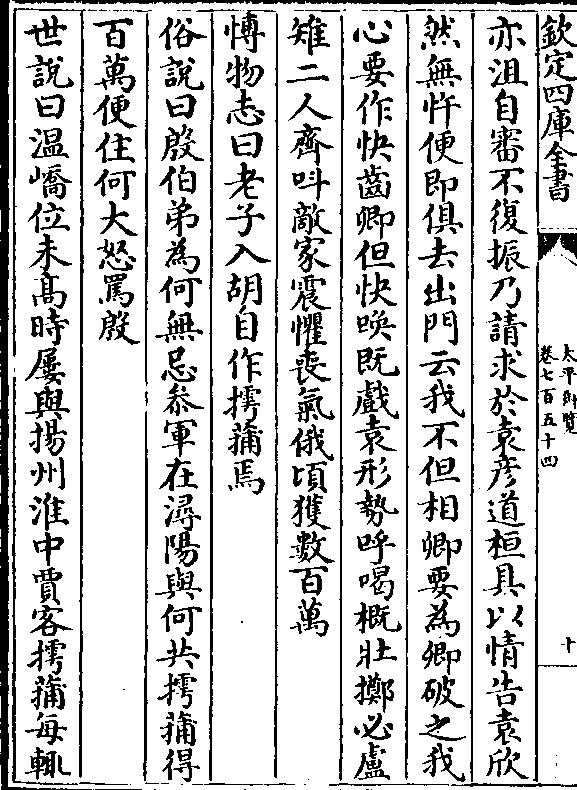 欽定四庫全書
太平御覽
卷七百五十四
十
亦沮自審不復振乃請求於袁彦道桓具以情告袁欣
然無忤便即俱去出門云我不但相卿要為卿破之我
心要作快齒卿但快喚既戲袁形勢呼喝概壯擲必盧
雉二人齊叫敵家震懼喪氣俄頃獲數百萬
博物志曰老子入胡自作摴蒱焉
俗說曰殷伯弟為何無忌叅軍在潯陽與何共摴蒱得
百萬便住何大怒罵殷
世說曰温嶠位未髙時屢與揚州淮中賈客摴蒱每輙